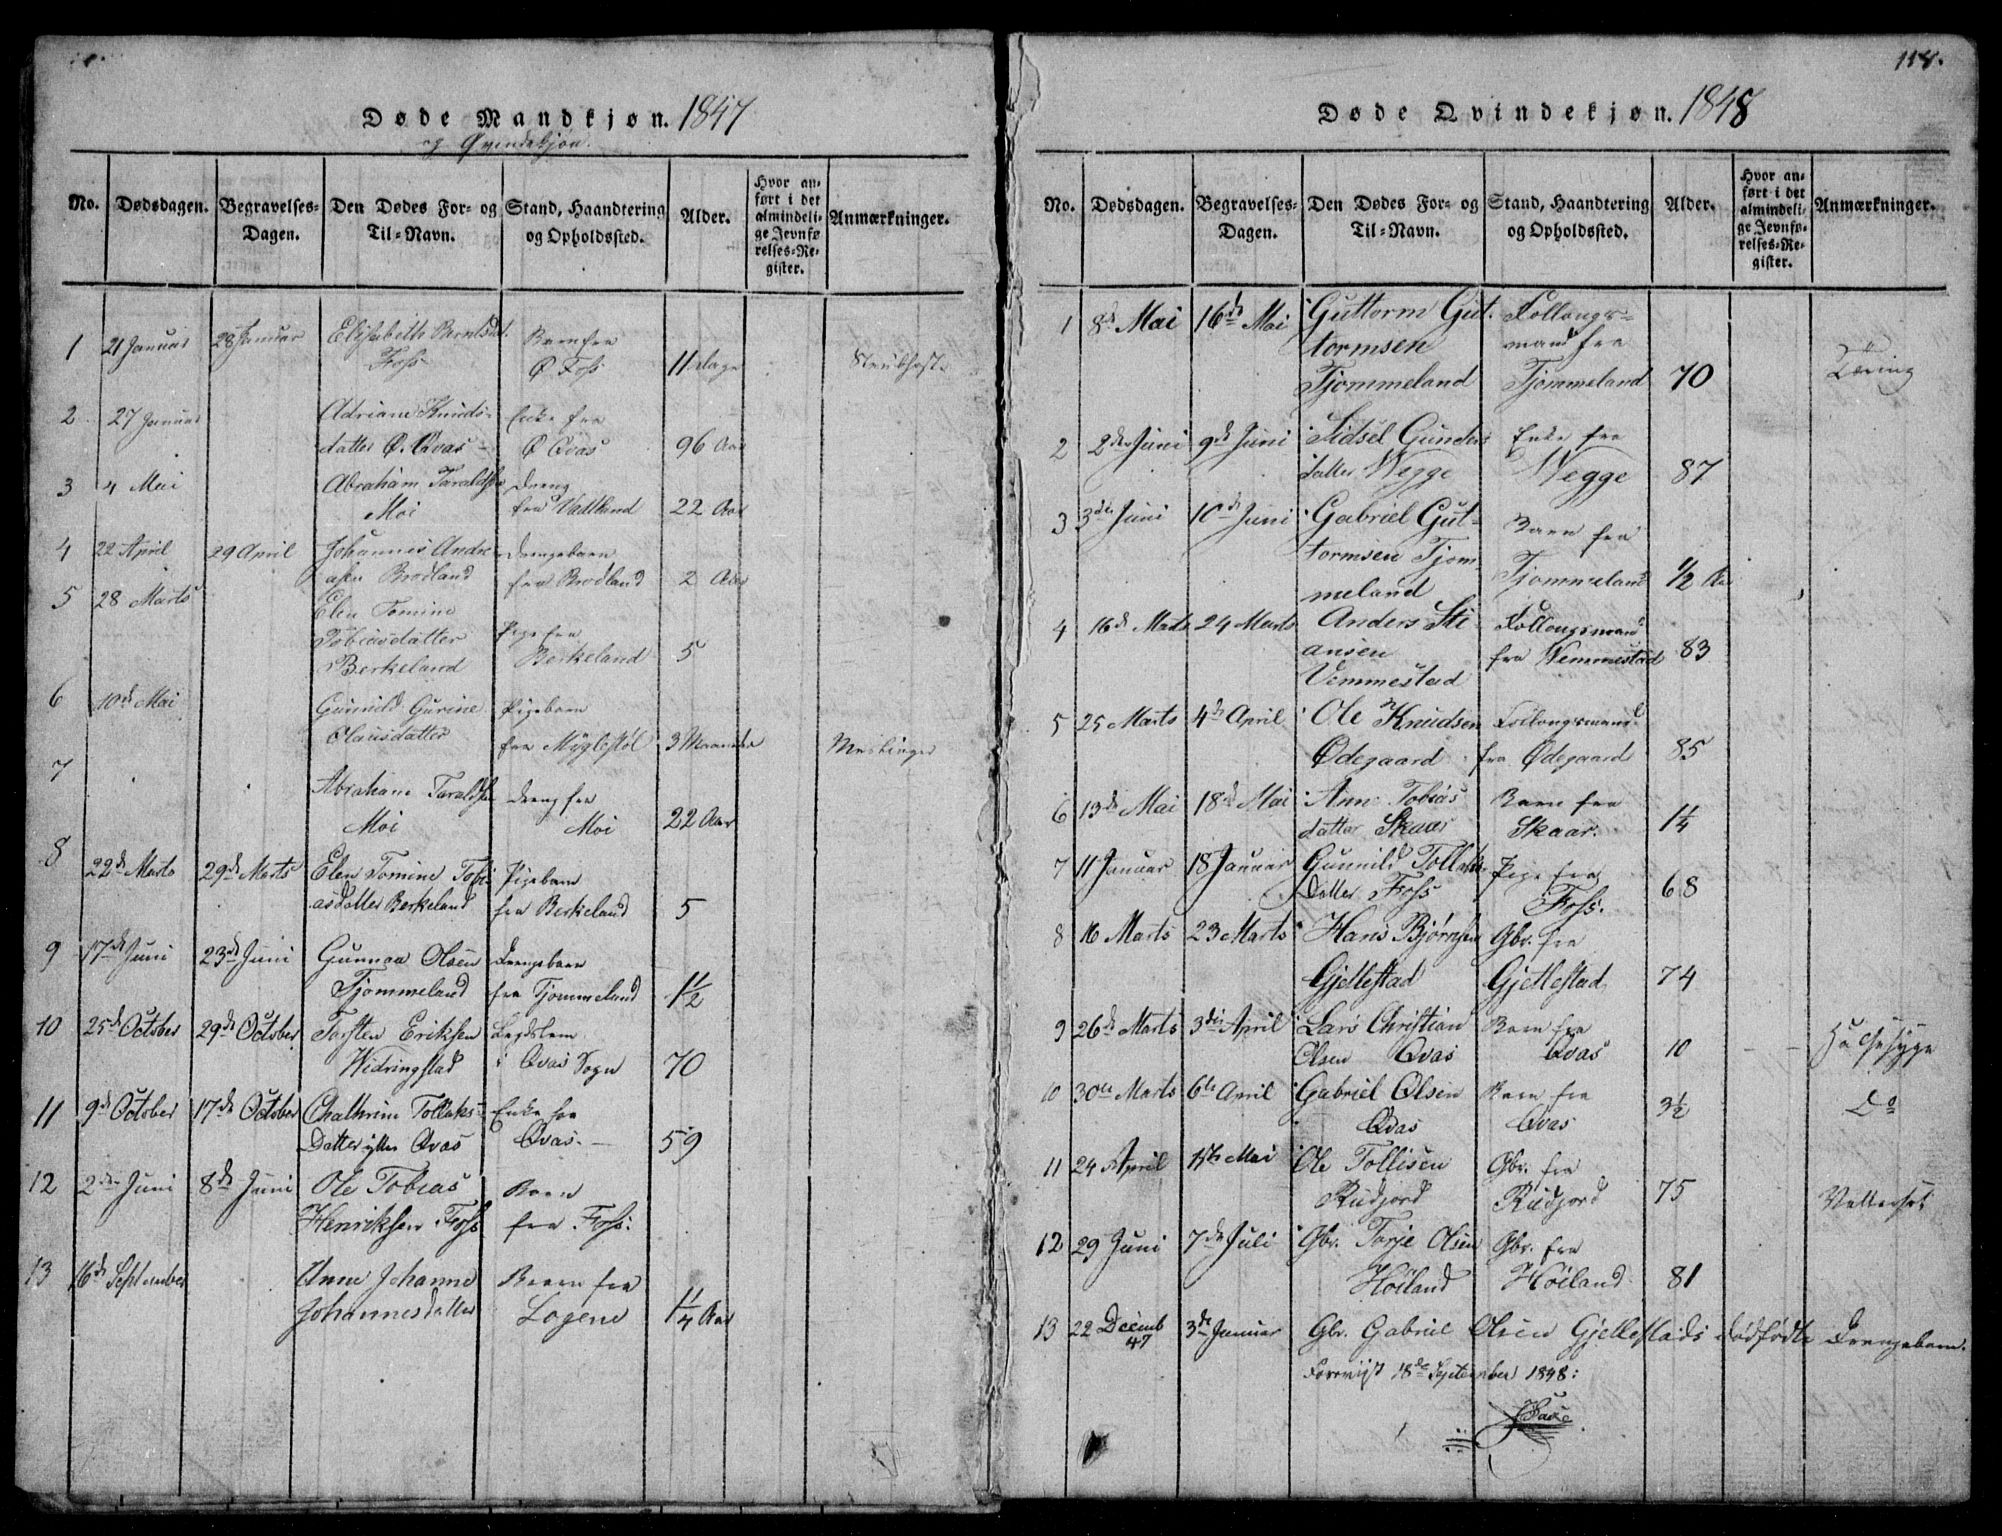 Døde Mandkjøn. 1847
og Qvindekjøn.
No. Dødsdagen. Begravelses-Dagen. Den Dødes For- og Til-Navn. Stand, Haandtering og Opholdssted. Alder. Hvor anført i det almindelige Jevnførelses-Register. Anmærkninger.
1 21 Januar 28 Januar Elisabeth Berntsdt. Barn fra
Foss Ø Foss 11 Dage
2 27 Januar Adriane Knuds- Enke fra
datter Ø. Qvas Ø Qvas 96 Aar
3 4 Mai Abraham Taraldsen Dreng
Moi fra Vatland 22 Aar
4 22 April 29 April Johannes Andre- Drengebarn
asen Brodland fra Brodland 2 Aar
5 28 Marts Elen Tomine
Tobiasdatter Pige fra
Berkeland Berkeland 5
6 10de Mai Gunnild Gurine Pigebarn
Olausdatter fra Myglestøl 3 Maaneder Meslinger
7 Abraham Taraldsen Dreng fra
Moi Moi 22 Aar
8 22de Marts 29de Marts Elen Tomine Tobi- Pigebarn
asdatter Berkeland fra Berkeland 5
9 17de Juni 23de Juni Gunnar Olsen Drengebarn
Tjommeland fra Tjommeland 1 1/2
10 25de October 29de October Torsten Eriksen Legdslem
Widringstad i Qvas Sogn 70
11 9de October 17de October Chathrine Tollaks- Enke fra
Datter ytter Qvas Qvas. 59
12 2den Juni 8de Juni Ole Tobias Barn
Henriksen Foss fra Foss.
13 16de September Anne Johanne Barn fra
Johannesdatter Logene 1 1/4 Aar
114.
Døde Qvindekjøn. 1848
No. Dødsdagen. Begravelses-Dagen. Den Dødes For- og Til-Navn. Stand, Haandtering og Opholdssted. Alder. Hvor anført i det almindelige Jevnførelses-Register. Anmærkninger.
1 8de Mai 16de Mai Guttorm Gut- Follougs-
tormsen mand fra
Tjommeland Tjommeland 70 Tæring
2 2den Juni 9de Juni Sidsel Gunders Enke fra
datter Wegge Wegge 87
3 3die Juni 10de Juni Gabriel Gut- Barn fra
tormsen Tjom- Tjommeland 1/2 Aar
meland
4 16de Marts 24 Marts Anders Sti Follougsmand
ansen fra Wemmestad 83
Vemmestad
5 25 Marts 4de April Ole Knudsen Follougsmand
Ødegaard fra Ødegaard 85
6 13de Mai 18de Mai Ane Tobias Barn fra
datter Skaar Skaar. 1 1/4
7 11 Januar 18 Januar Gunnild Tollaks Pige fra
Datter Foss Foss. 68
8 16 Marts 23 Marts Hans Bjørnsen Gbr. fra
Gjellestad Gjellestad 74
9 26de Marts 3die April Lars Christian Barn fra
Olsen Qvas Qvas 10 Halssyge
10 30te Marts 6te April Gabriel Olsen Barn fra
Qvas Qvas 3 1/2 Do
11 24 April 1ste Mai Ole Tollisen Gbr. fra
Rudjord Rudjord 75 Vattersot
12 29 Juni 7de Juli Gbr. Torje Olsen Gbr. fra
Høiland Høiland 81
13 22 Decemb 47 3de Januar Gbr. Gabriel Olsen Gjellestads dødfødte Drengebarn.
Forevist 18de September 1848: